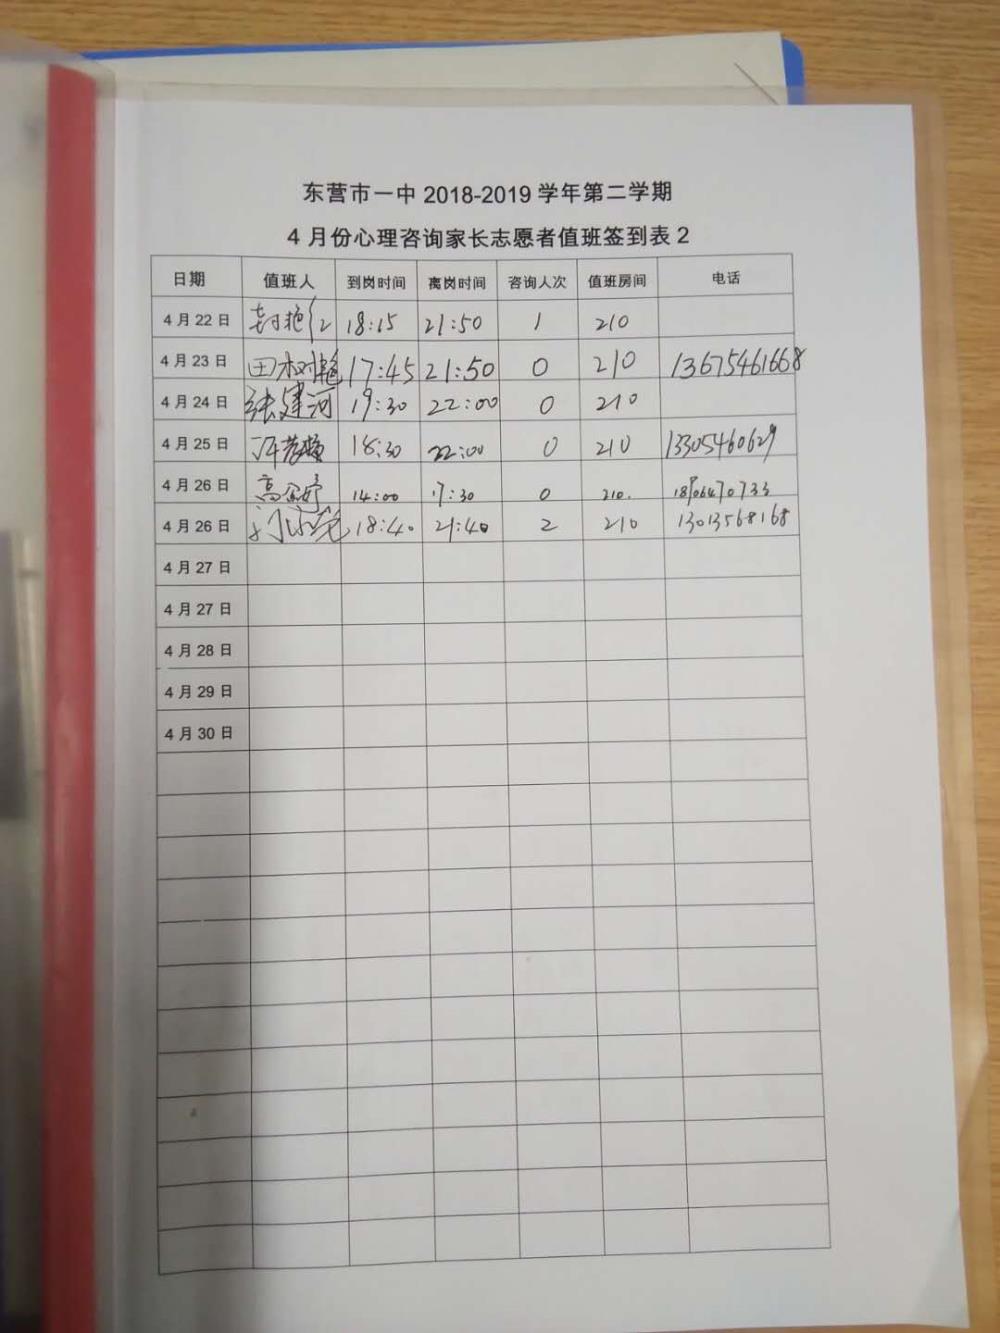 东营市一中 2018-2019 学年第二学期
4 月份心理咨询家长志愿者值班签到表 2
日期 值班人 到岗时间 离岗时间 咨询人次 值班房间 电话
4 月 22 日 18:15 21:50 1 210
4 月 23 日 田树艳 17:45 21:50 0 210 13675461668
4 月 24 日 张建河 19:30 22:00 0 210
4 月 25 日 18:30 22:00 0 210 13305460629
4 月 26 日 14:00 17:30 0 210.
4 月 26 日 18:40 21:40 2 210 13013568168
4 月 27 日
4 月 27 日
4 月 28 日
4 月 29 日
4 月 30 日